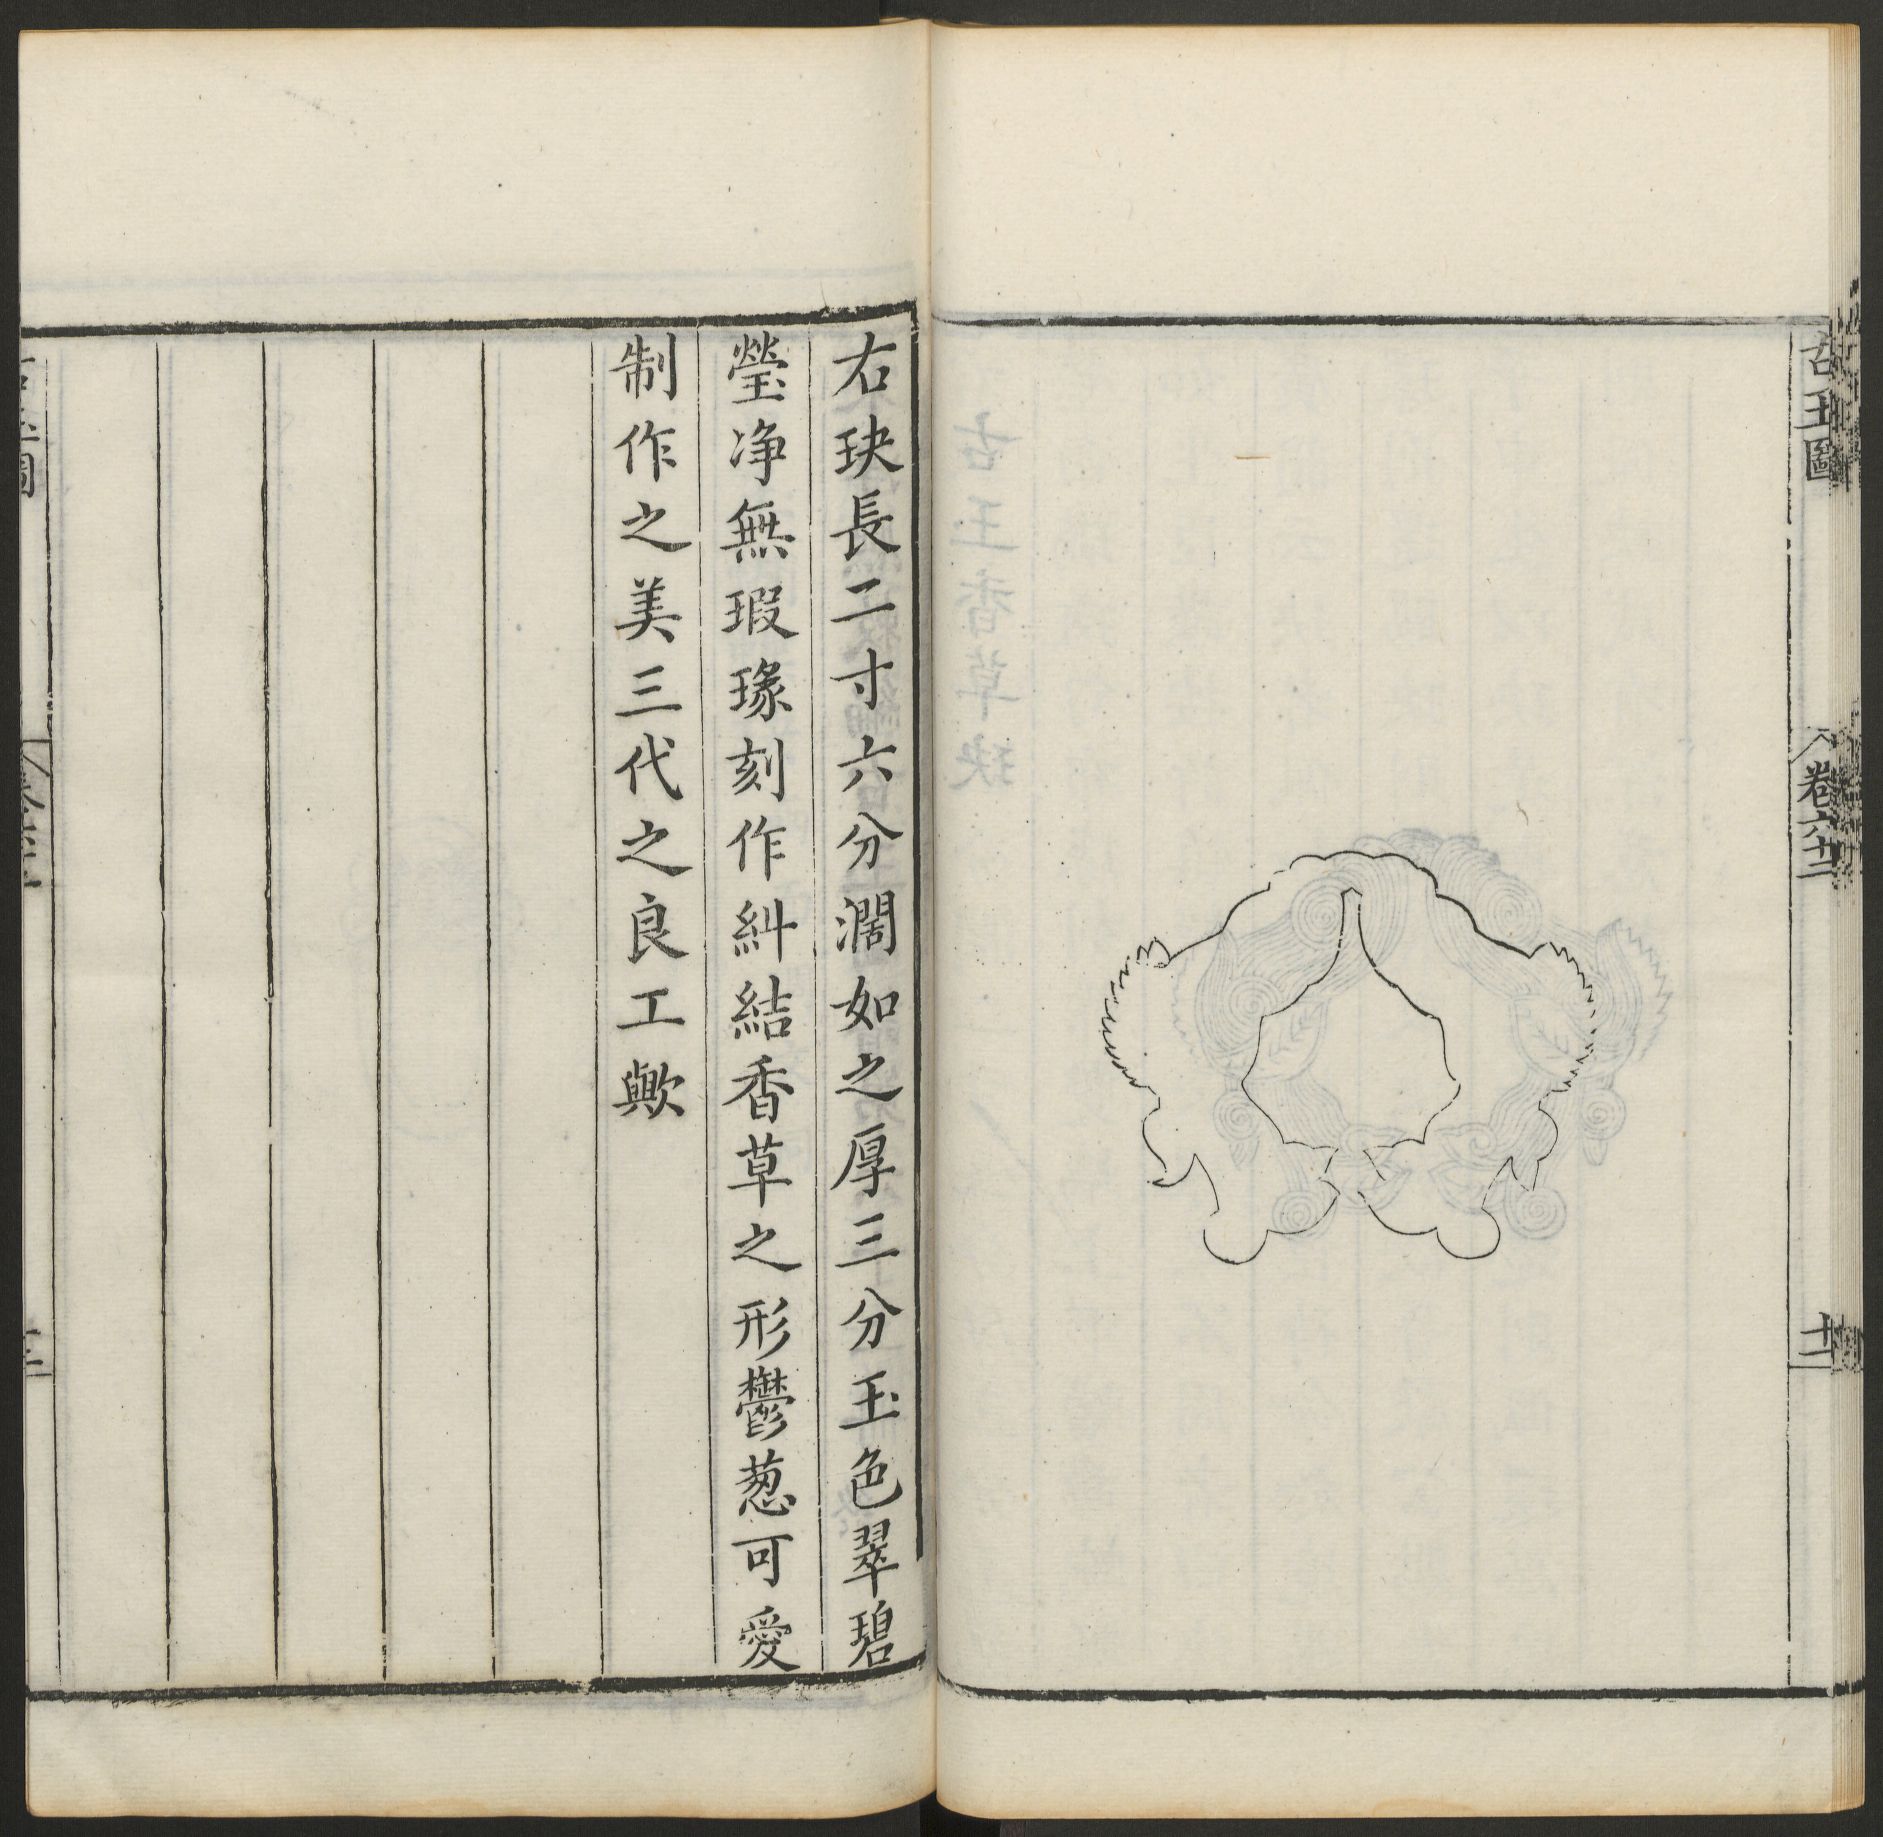 古玉圖
卷六十二
十二
右玦長二寸六分濶如之厚三分玉色翠碧
瑩净無瑕瑑刻作糾結香草之形鬱葱可愛
制作之美三代之良工歟